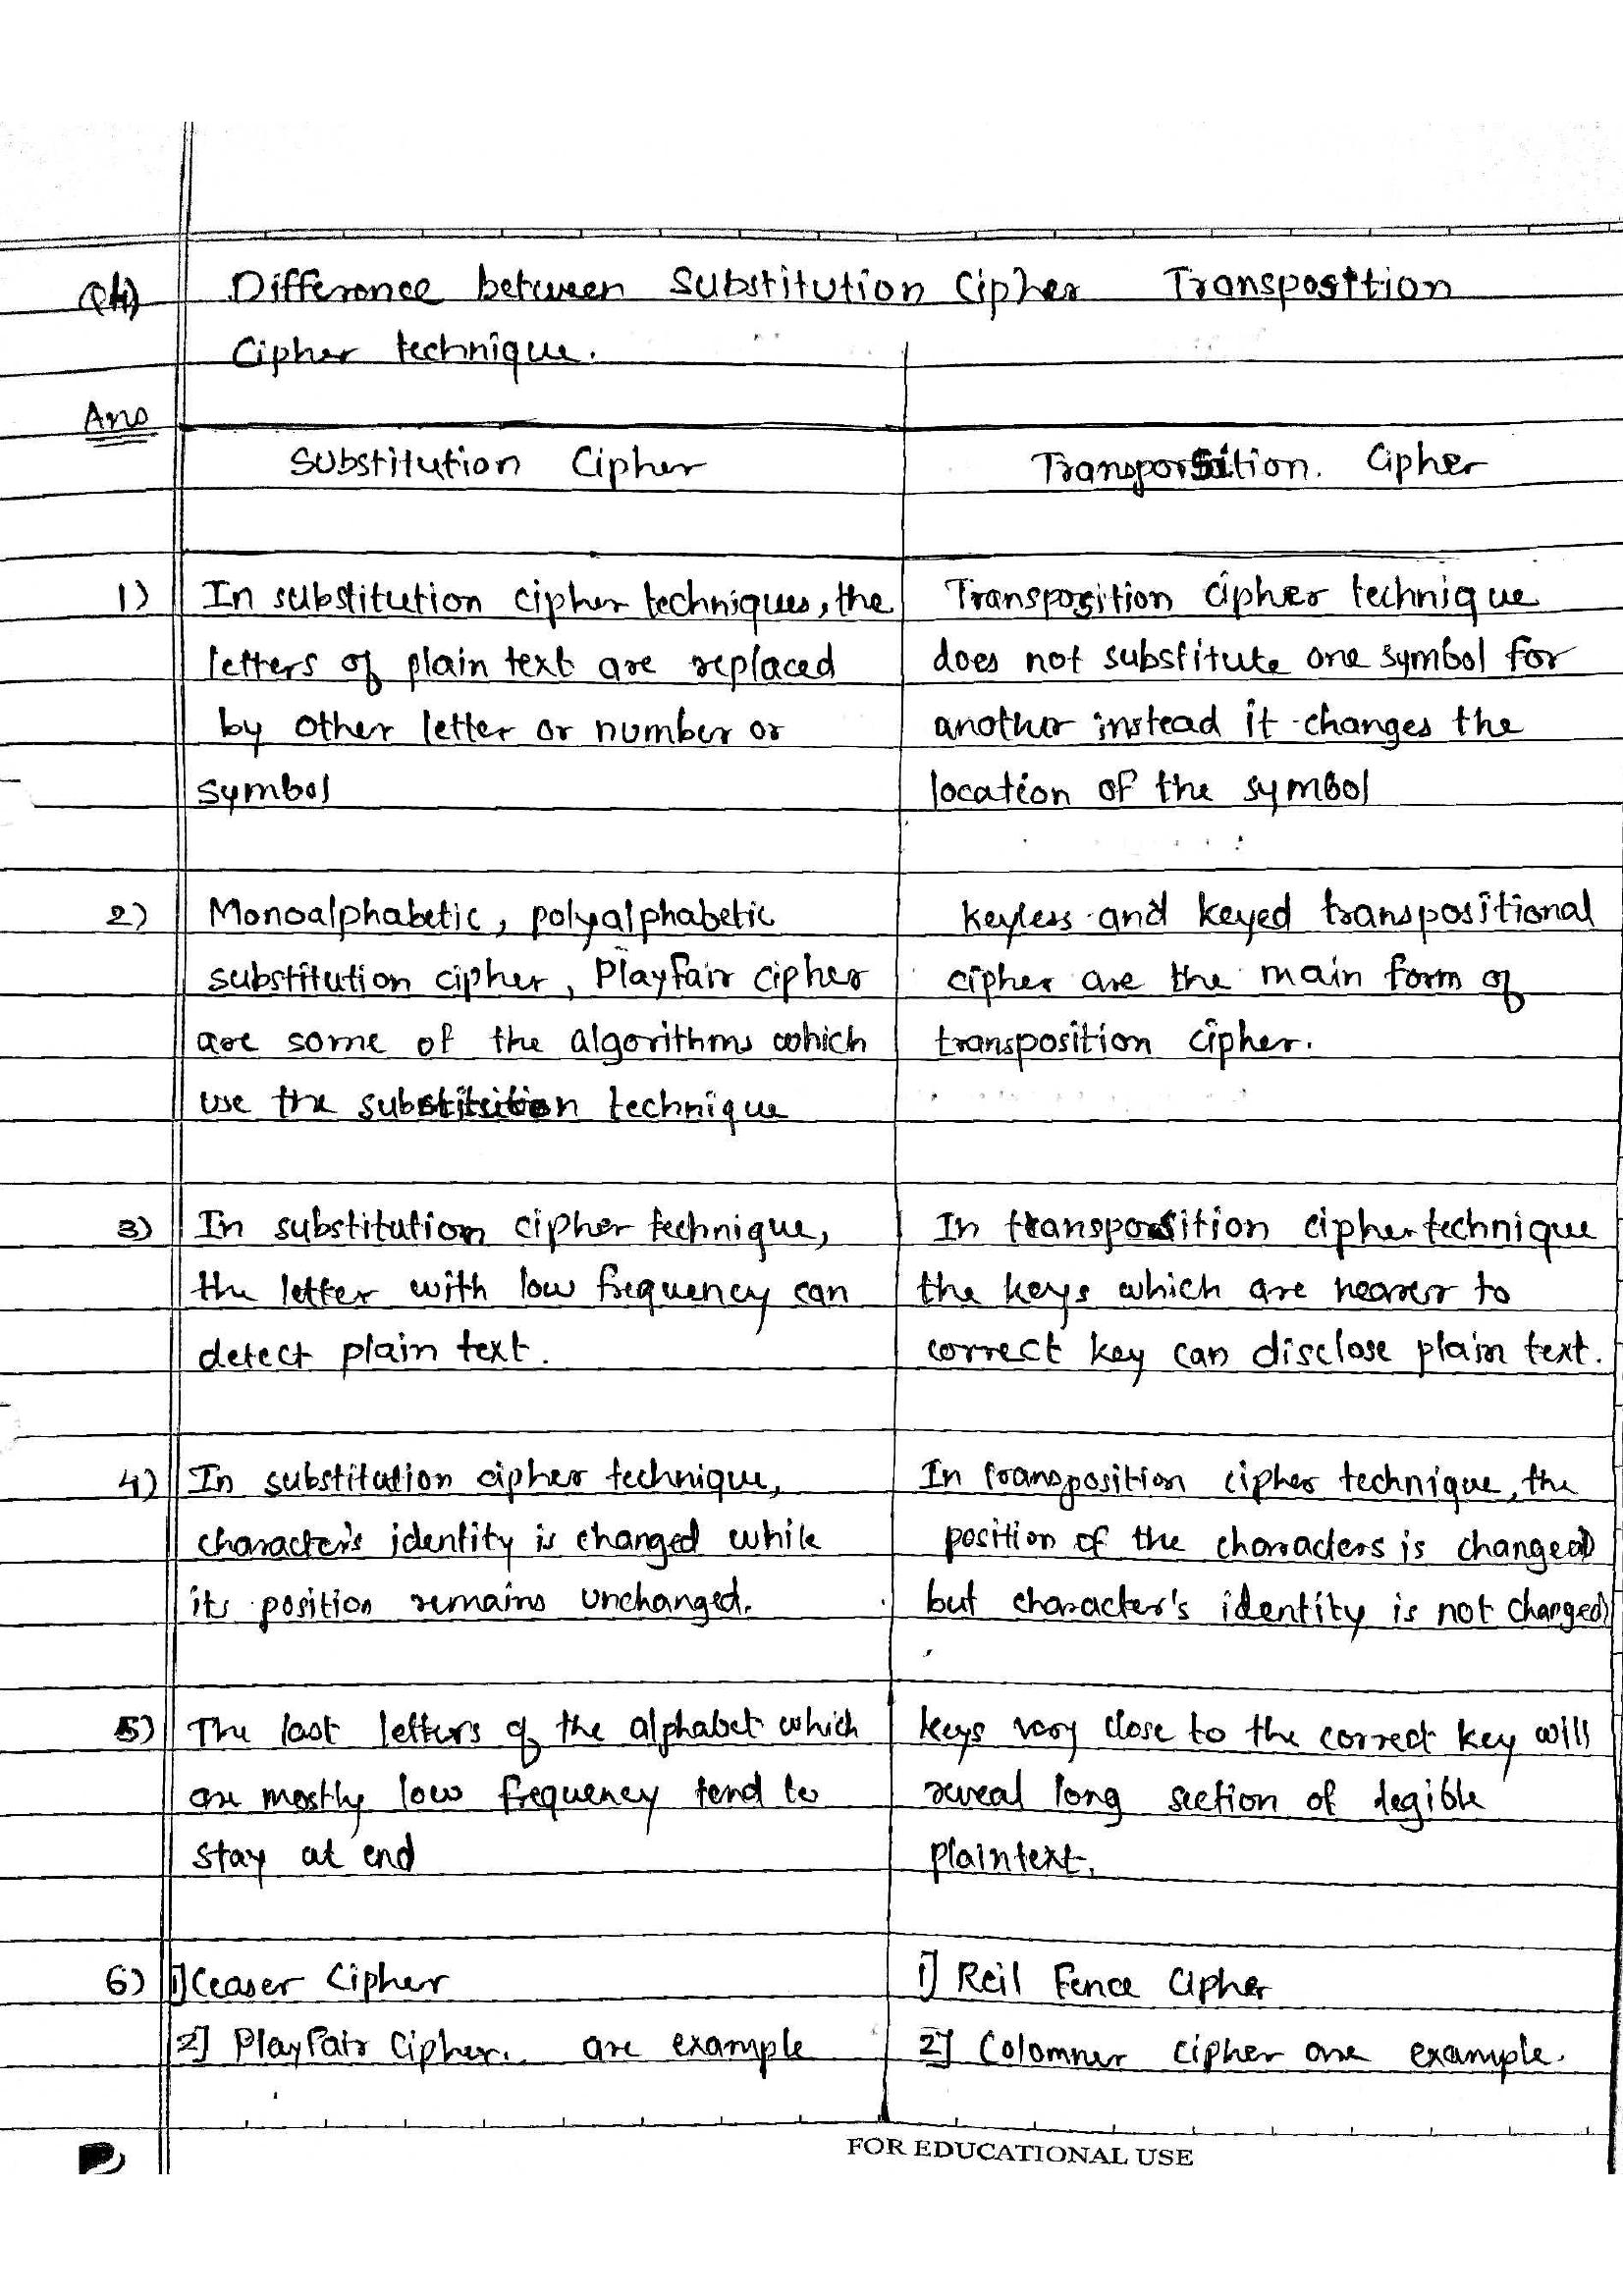 Q4) Difference between Substitution Cipher Transposition
Cipher technique.
Ans
Substitution Cipher
Transporsition. Cipher
1) In substitution cipher techniques, the
letters of plain text are replaced
by other letter or number or
symbol
Transposition cipher technique
does not substitute one symbol for
another instead it changes the
location of the symbol
2) Monoalphabetic, polyalphabetic
substitution cipher, Playfair cipher
are some of the algorithms which
use the substitution technique
keyless and keyed transpositional
cipher are the main form of
transposition cipher.
3) In substitution cipher technique,
the letter with low frequency can
detect plain text.
In transposition cipher technique
the keys which are nearer to
correct key can disclose plain text.
4) In substitution cipher technique,
character's identity is changed while
its position remains unchanged.
In transposition cipher technique, the
position of the characters is changed
but character's identity is not changed
5) The last letters of the alphabet which
are mostly low frequency tend to
stay at end
keys very close to the correct key will
reveal long section of legible
plaintext.
6) 1] Ceaser Cipher
2] Playfair Cipher. are example
1] Reil Fence Cipher
2] Colomner cipher are example.
FOR EDUCATIONAL USE